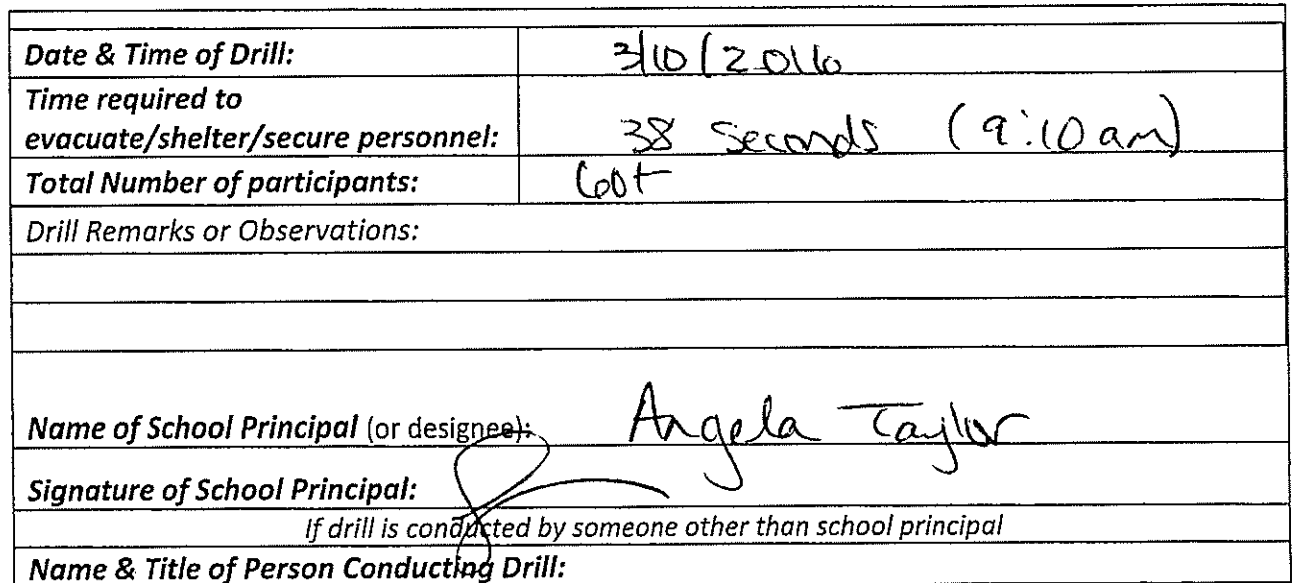 Date & Time of Drill: 3/10/2016
Time required to
evacuate/shelter/secure personnel: 38 seconds (9:10 am)
Total Number of participants: 600+
Drill Remarks or Observations:
Name of School Principal (or designee): Angela Taylor
Signature of School Principal:
If drill is conducted by someone other than school principal
Name & Title of Person Conducting Drill: